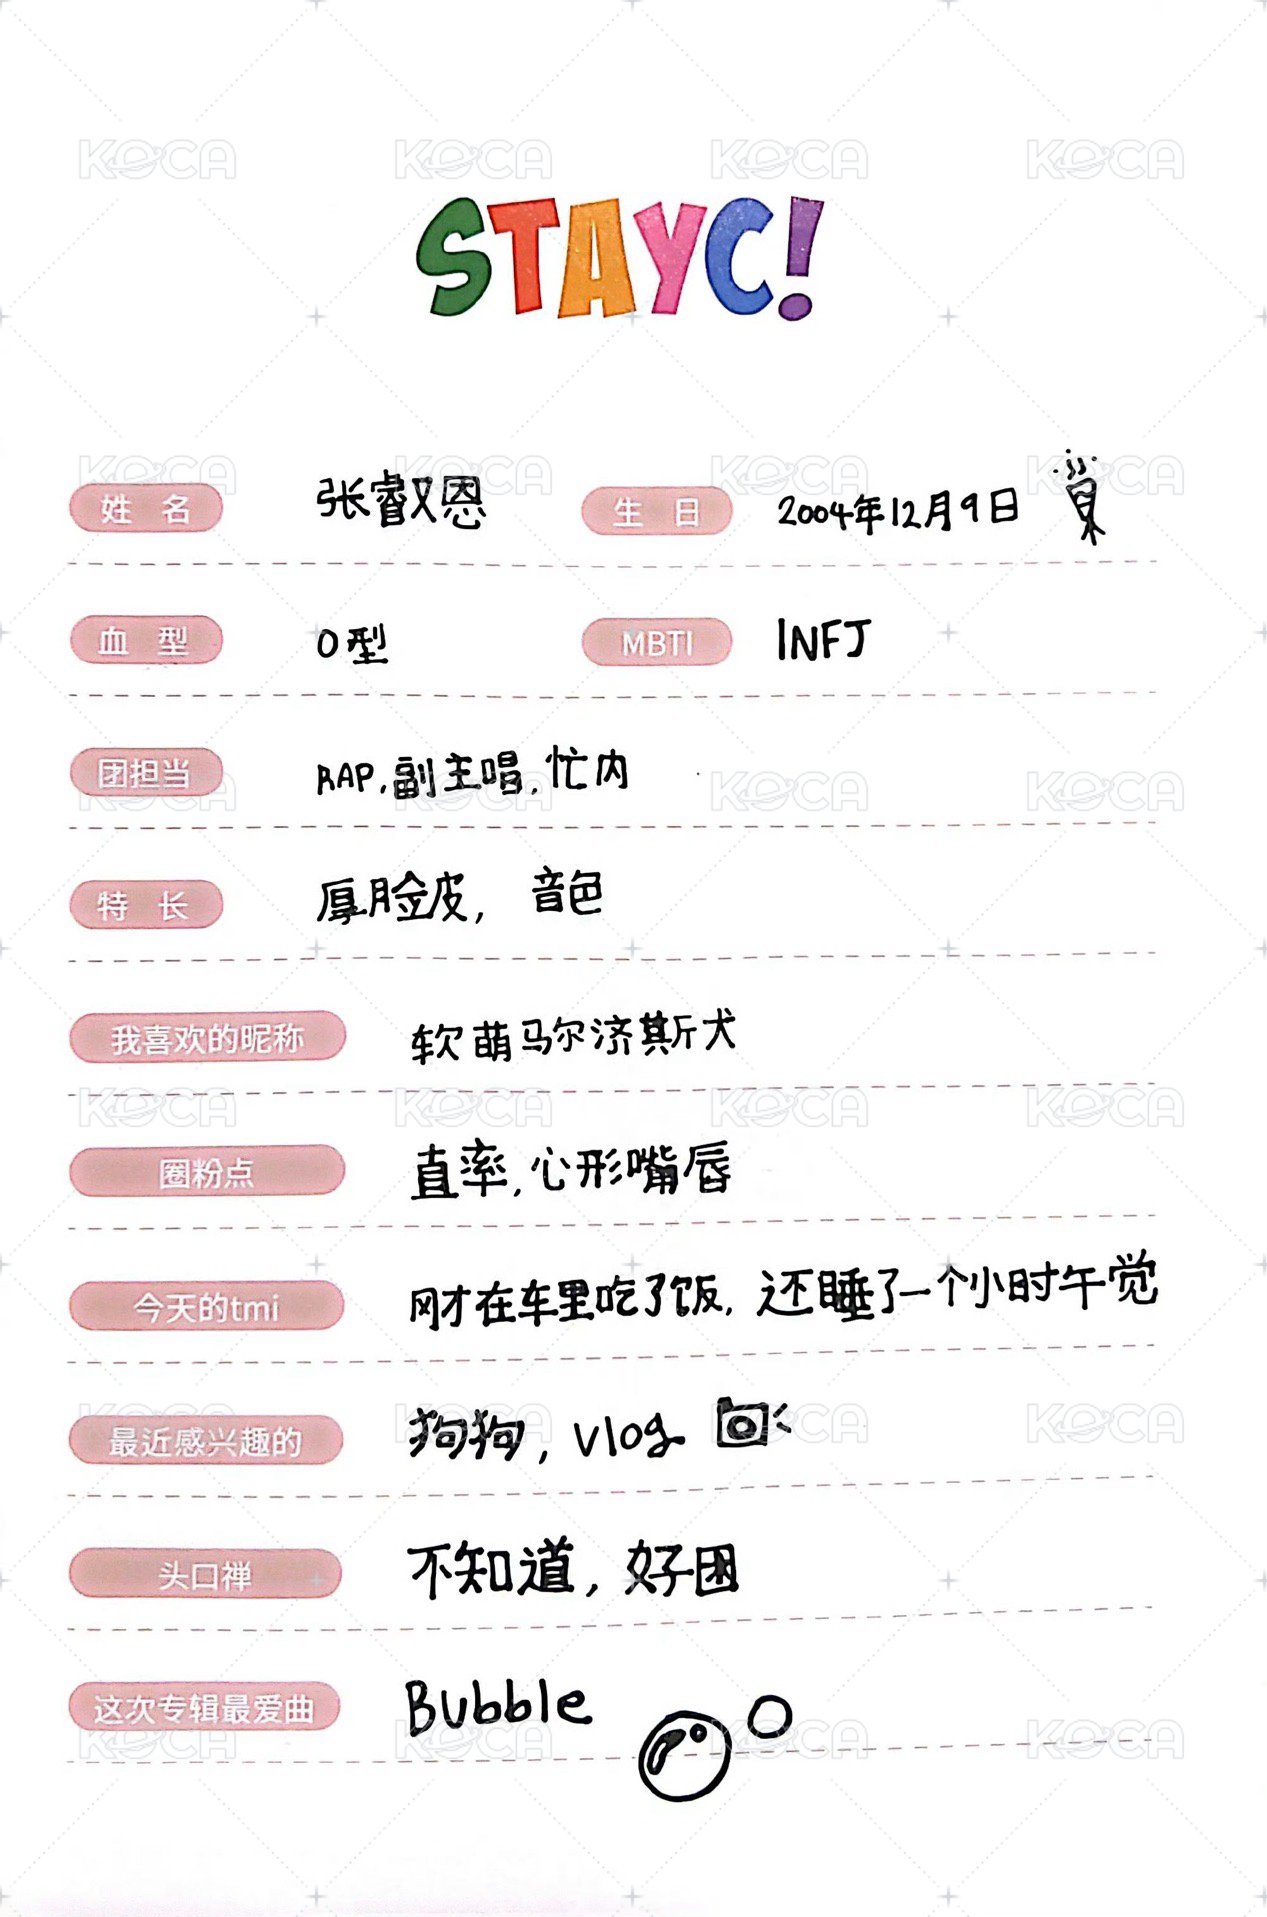 STAYC!
姓名 张睿恩 生日 2004年12月9日
血型 O型 MBTI INFJ
团担当 RAP,副主唱,忙内
特长 厚脸皮, 音色
我喜欢的昵称 软萌马尔济斯犬
圈粉点 直率,心形嘴唇
今天的tmi 刚才在车里吃了饭, 还睡了一个小时午觉
最近感兴趣的 狗狗, vlog
头口禅 不知道, 好困
这次专辑最爱曲 Bubble
KOCA